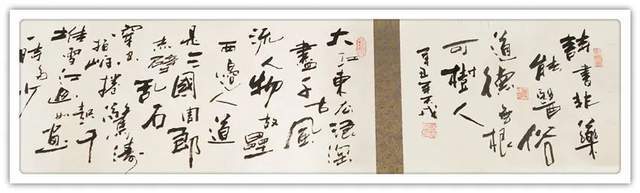 詩書非藥
能醫俗
道德無根
可樹人
辛丑年
大江東去浪淘
盡千古風
流人物故壘
西邊人道
是三國周郎
赤壁亂石
穿空驚濤
拍岸捲起千
堆雪江山如畫
一時多少